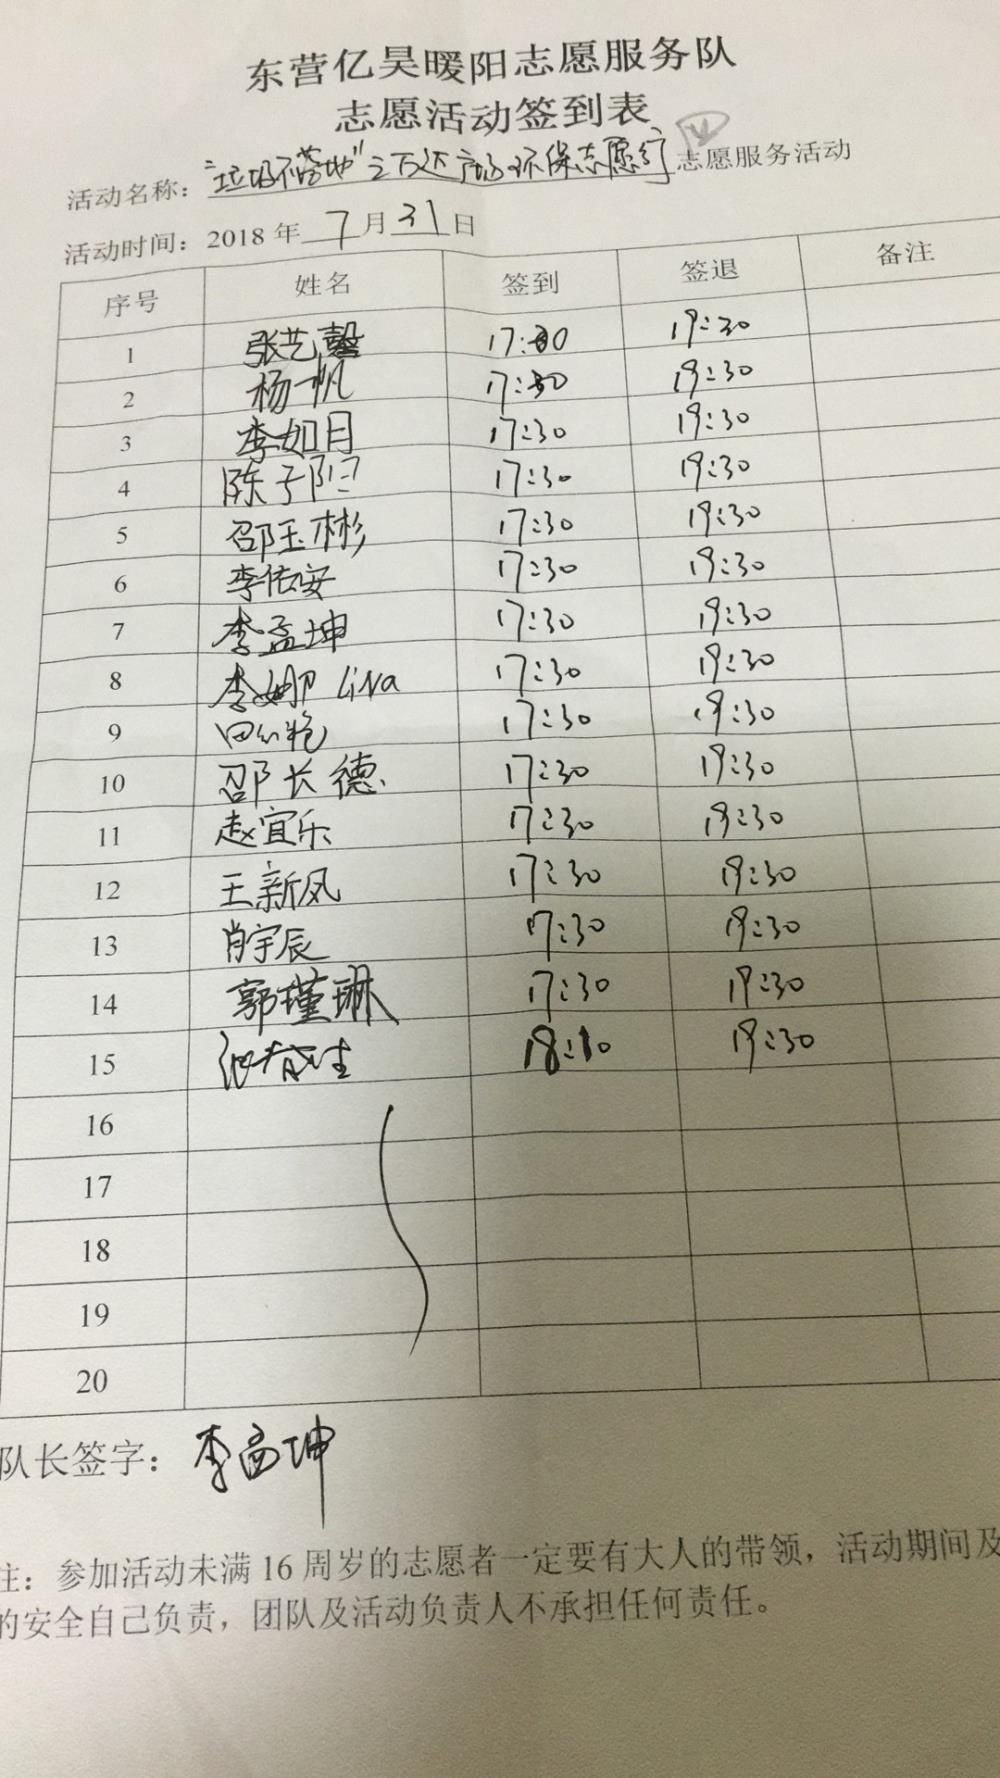 东营亿昊暖阳志愿服务队
志愿活动签到表
活动名称：“垃圾不落地”之万达广场环保志愿行志愿服务活动
活动时间：2018年7月31日
序号 姓名 签到 签退 备注
1 张艺馨 17:30 19:30
2 杨一帆 17:30 19:30
3 李如月 17:30 19:30
4 陈子阳 17:30 19:30
5 邵玉彬 17:30 19:30
6 李依安 17:30 19:30
7 李孟坤 17:30 19:30
8 李娜 Lina 17:30 19:30
9 田红艳 17:30 19:30
10 邵长德 17:30 19:30
11 赵宜乐 17:30 19:30
12 王新凤 17:30 19:30
13 肖宇辰 17:30 19:30
14 郭瑾琳 17:30 19:30
15 18:10 19:30
16
17
18
19
20
队长签字：李孟坤
注：参加活动未满16周岁的志愿者一定要有大人的带领，活动期间及
的安全自己负责，团队及活动负责人不承担任何责任。